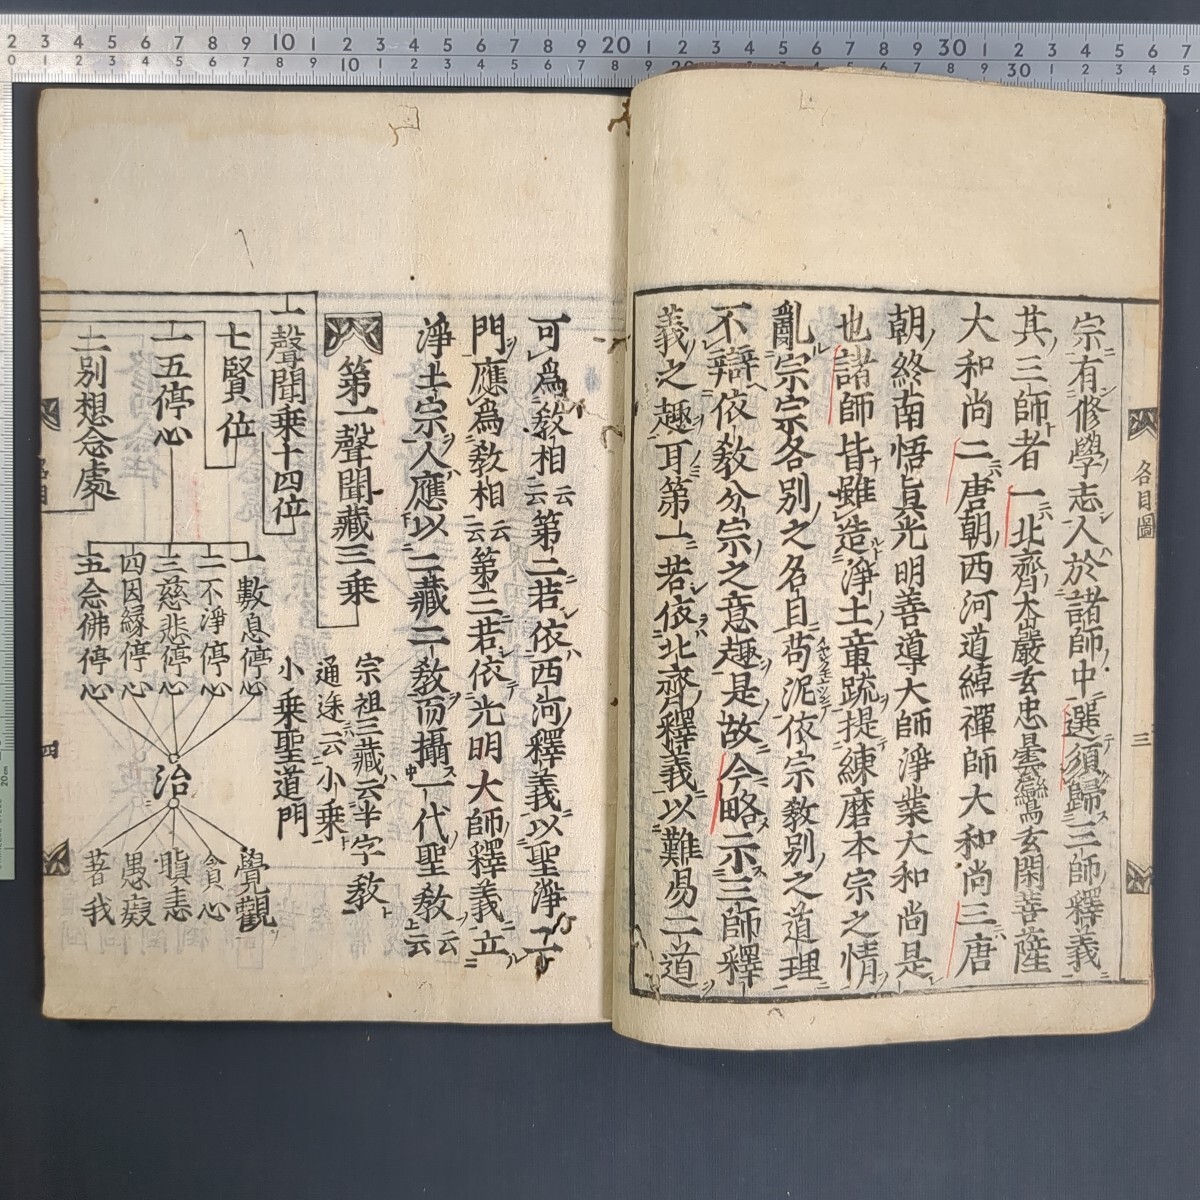 宗有修學志人於諸師中選須歸三師釋義
其三師者一北齊大巖玄忠曇鸞玄閑菩薩
大和尚二唐朝西河道綽禪師大和尚三唐
朝終南悟真光明善導大師淨業大和尚是
也諸師皆雖造淨土章疏提練磨本宗之情
亂宗宗各別之名目苟泥依宗教別之道理
不辯依教分宗之意趣是故今略示三師釋
義之趣耳第一若依北齊釋義以難易二道
各目圖
三
可為教相云云第二若依西河釋義以聖淨二
門應為教相云云第三若依光明大師釋義立
淨土宗人應以二藏二教而攝一代聖教上云云
第一聲聞藏三乘
宗祖三藏云半字教
通途云小乘
小乘聖道門
一聲聞乘十四位
七賢位
一五停心
一數息停心
二不淨停心
三慈悲停心
四因緣停心
五念佛停心
治
覺觀
貪心
瞋恚
愚癡
著我
二別想念處
四